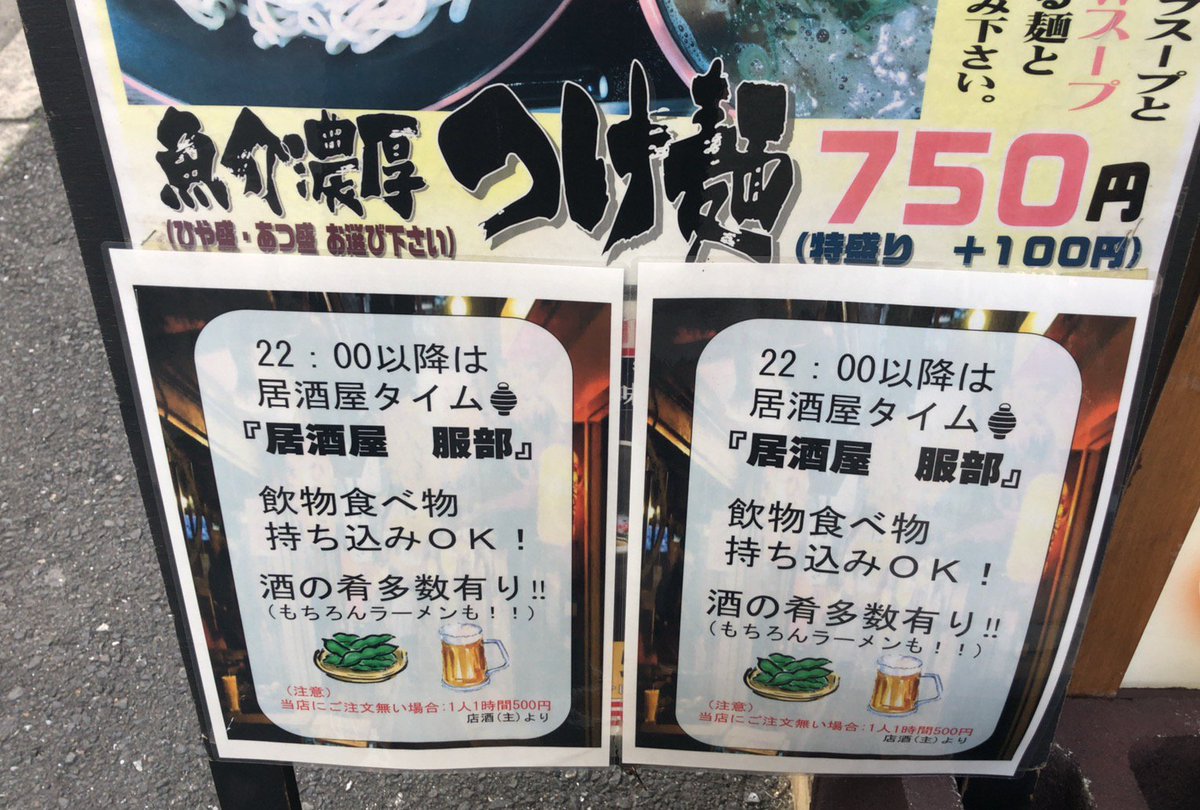 プスープと
スープ
る麺と
み下さい。
魚介濃厚 つけ麺 750円
(ひや盛・あつ盛 お選び下さい)
(特盛り +100円)
22：00以降は
居酒屋タイム
『居酒屋 服部』
飲物食べ物
持ち込みOK！
酒の肴多数有り!!
(もちろんラーメンも！！)
(注意)
当店にご注文無い場合：1人1時間500円
店酒(主)より
22：00以降は
居酒屋タイム
『居酒屋 服部』
飲物食べ物
持ち込みOK！
酒の肴多数有り!!
(もちろんラーメンも！！)
(注意)
当店にご注文無い場合：1人1時間500円
店酒(主)より